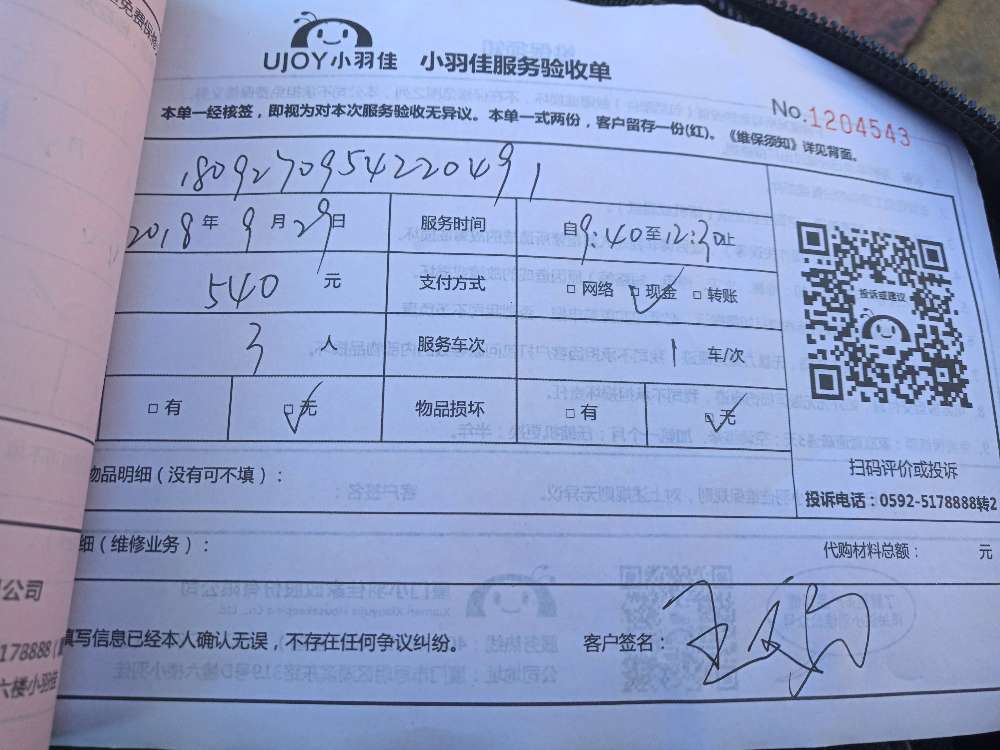 UJOY小羽佳 小羽佳服务验收单
No.1204543
本单一经核签，即视为对本次服务验收无异议。本单一式两份，客户留存一份(红)。《维保须知》详见背面。
1809270954220491
2018年9月29日 服务时间 自9:40至12:30止
540元 支付方式 □网络 □现金 □转账
3人 服务车次 1车/次
□有 □无 物品损坏 □有 □无
投诉或建议
扫码评价或投诉
投诉电话：0592-5178888转2
物品明细（没有可不填）：
细（维修业务）： 代购材料总额： 元
填写信息已经本人确认无误，不存在任何争议纠纷。 客户签名：
公司
178888
六楼小羽佳